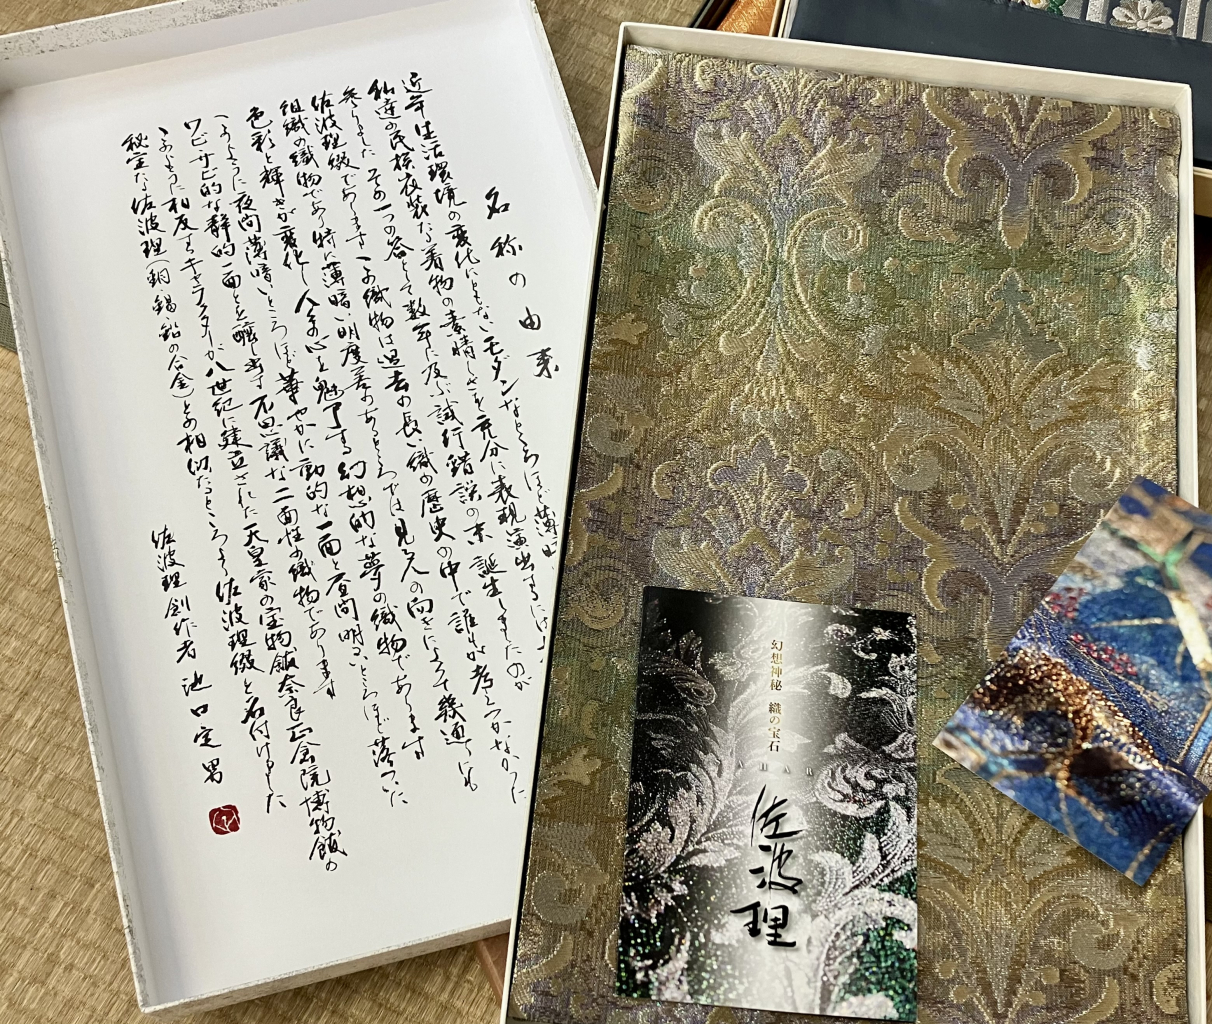 名称の由来
近年生活環境の変化にともないモダンなところほど薄暗
私達の民族衣装な着物の素晴しさを充分に表現演出するには
参りました その一つの答として数年に及ぶ試行錯誤の末 誕生しましたのが
佐波理綴であります この織物は過去の長い織の歴史の中で誰もが考えつかなかった
組織の織物であり特に薄暗い明度差のあるところでは見る人の向きによって幾通りにも
色彩と輝きが変化し人の心を魅了する幻想的な夢の織物であります
このように夜間薄暗いところほど華やかに動的な一面と昼間明るいところほど落ついた
ワビサビ的な静的一面とを醸し出す不思議な二面性の織物であります
このように相反するキャラクターが八世紀に建立された天皇家の宝物館奈良正倉院博物館の
秘宝な佐波理(銅錫鉛の合金)との相似たるところより佐波理綴と名付けました
佐波理創作者 池口定男
幻想神秘 織の宝石
佐波理